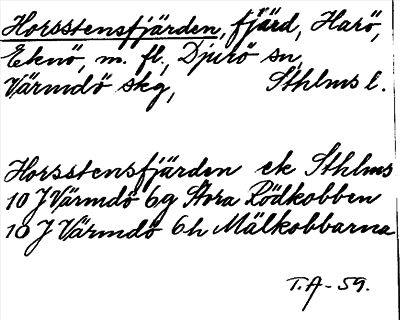 Horsstensfjärden, fjärd, Harö,
Eknö, m. fl., Djurö sn,
Värmdö skg, Sthlms l.
Horsstensfjärden ek Sthlms
10 J Värmdö 6g Stora Rödkobben
10 J Värmdö 6h Mälkobbarna
T.A-59.